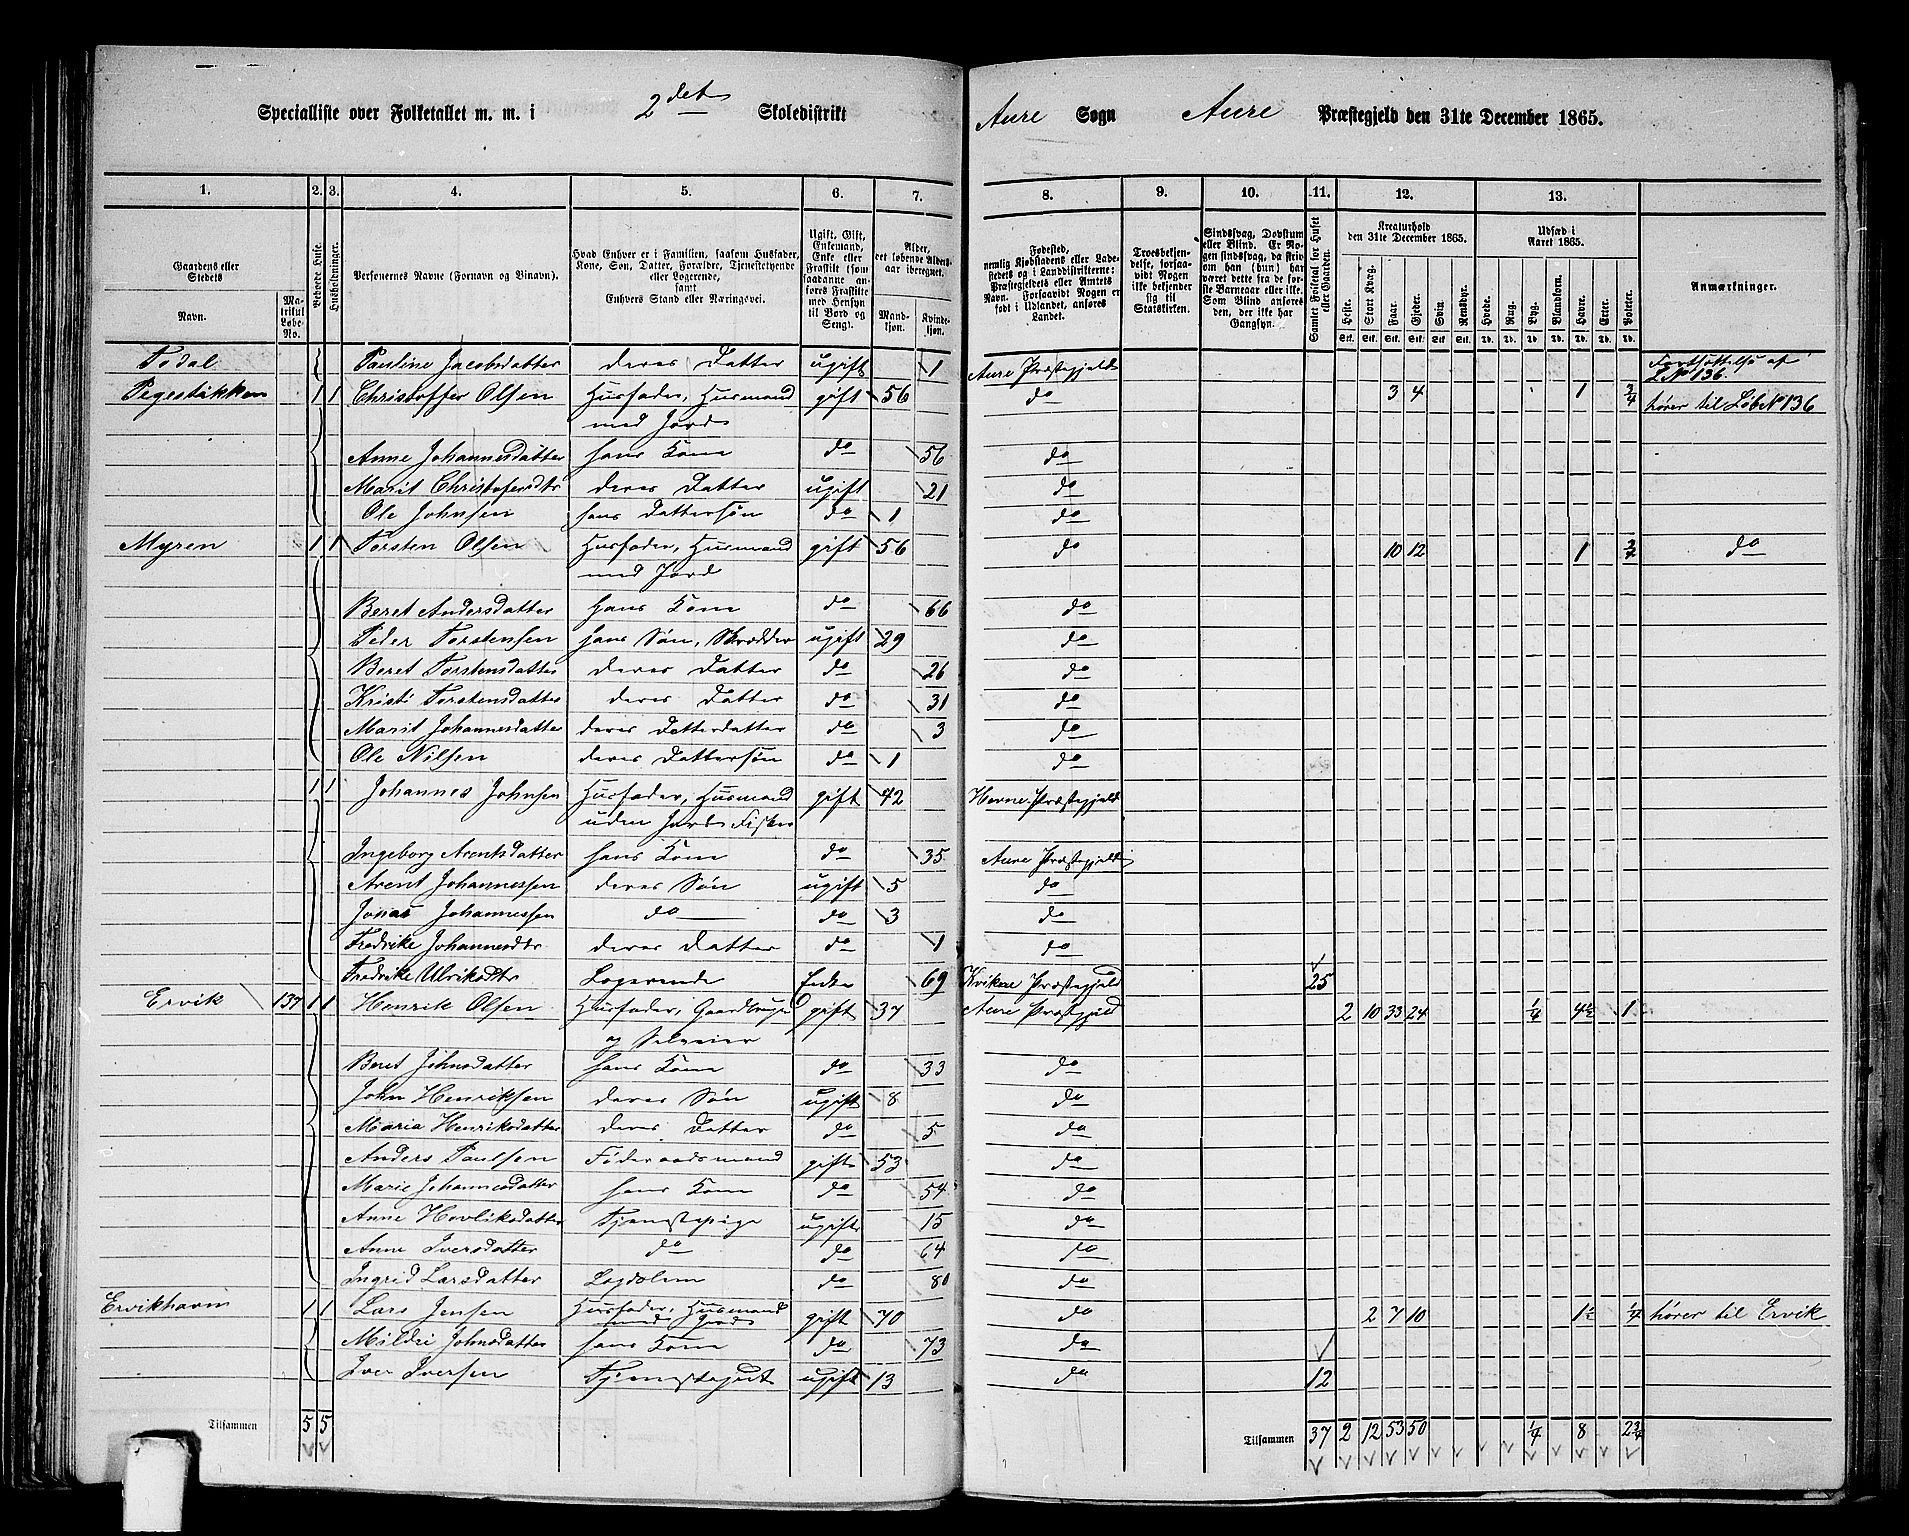 Specialliste over Folketallet m. m. i 2det Skoledistrikt Aure Sogn Aure Præstegjeld den 31te December 1865.
1. 2. 3. 4. 5. 6. 7. 8. 9. 10. 11. 12. 13.
Gaardens eller Stedets Navn. Matrikul Løbe-No. Beboede Huse. Husholdninger. Personernes Navne (Fornavn og Binavn). Hvad Enhver er i Familien, saasom Husfader, Kone, Søn, Datter, Forældre, Tjenestetyende eller Logerende, samt Enhvers Stand eller Næringsvei. Ugift, Gift, Enkemand, Enke eller Fraskilt (som saadanne anføres Fraskilte med Hensyn til Bord og Seng). Alder, det løbende Aldersaar iberegnet. Mandkjøn. Kvindekjøn. Fødested, nemlig Kjøbstadens eller Ladestedets og i Landdistrikterne: Præstegjeldets eller Amtets Navn. Forsaavidt Nogen er født i Udlandet, anføres Landet. Troesbekjendelse, forsaavidt Nogen ikke bekjender sig til Statskirken. Sindssvag, Døvstum eller Blind. Er Nogen sindssvag, da skrives om han (hun) har været dette fra de første Barneaar eller ikke. Som Blind anføres den, der ikke har Gangsyn. Samlet Folketal for Huset eller Gaarden. Kreaturhold den 31te December 1865. Heste. Stort Kvæg. Faar. Gjeder. Svin. Rensdyr. Udsæd i Aaret 1865. Hvede. Rug. Byg. Blandkorn. Havre. Erter. Poteter. Anmærkninger.
Todal Pauline Jacobsdatter deres Datter ugift 1 Aure Præstegjeld Fortsættelse af L No 136.
Pegestikken 1 1 Christoffer Olsen Husfader, Husmand med Jord gift 56 do 3 4 1 3/4 hører til Løb No 136
Anne Johannesdatter hans Kone do 56 do
Marit Christofersdtr deres Datter ugift 21 do
Ole Johnsen hans Dattersøn do 1 do
Myren 1 1 Torsten Olsen Husfader, Husmand med Jord gift 56 do 10 12 1 3/4 do
Beret Andersdatter hans Kone do 66 do
Peder Torstensen hans Søn, Skrædder ugift 29 do
Beret Torstensdatter deres Datter do 26 do
Kristi Torstensdatter deres Datter do 31 do
Marit Johannesdatter deres Datterdatter do 3 do
Ole Nilsen deres Dattersøn do 1 do
1 1 Johannes Johnsen Husfader, Husmand uden Jord Fisker gift 42 Hevne Præstegjeld
Ingeborg Arentsdatter hans Kone do 35 Aure Præstegjeld
Arent Johannessen deres Søn ugift 5 do
Jonas Johannessen do do 3 do
Fredrike Johannesdtr deres Datter do 1 do
Fredrike Ulriksdtr Logerende Enke 69 Kvikne Præstegjeld 25
Ervik 137 1 1 Henrik Olsen Husfader, Gaardbruger og Selveier gift 37 Aure Præstegjeld 2 10 33 24 1/4 4 1/2 1
Beret Johnsdatter hans Kone do 33 do
John Henriksen deres Søn ugift 8 do
Maria Henriksdatter deres Datter do 5 do
Anders Paulsen Føderaadsmand gift 53 do
Marie Johannesdatter hans Kone do 54 do
Anne Hovliksdatter Tjenestepige ugift 15 do
Anne Iversdatter do do 64 do
Ingrid Larsdatter Lægdslem do 80 do
Ervikhavn 1 1 Lars Jensen Husfader, Husmand med Jord gift 70 do 2 7 10 1 1/2 1/4 hører til Ervik
Mildri Johnsdatter hans Kone do 73 do
Iver Iversen Tjenestegut ugift 13 do 12
Tilsammen 5 5 Tilsammen 37 2 12 53 50 1/4 8 2 3/4